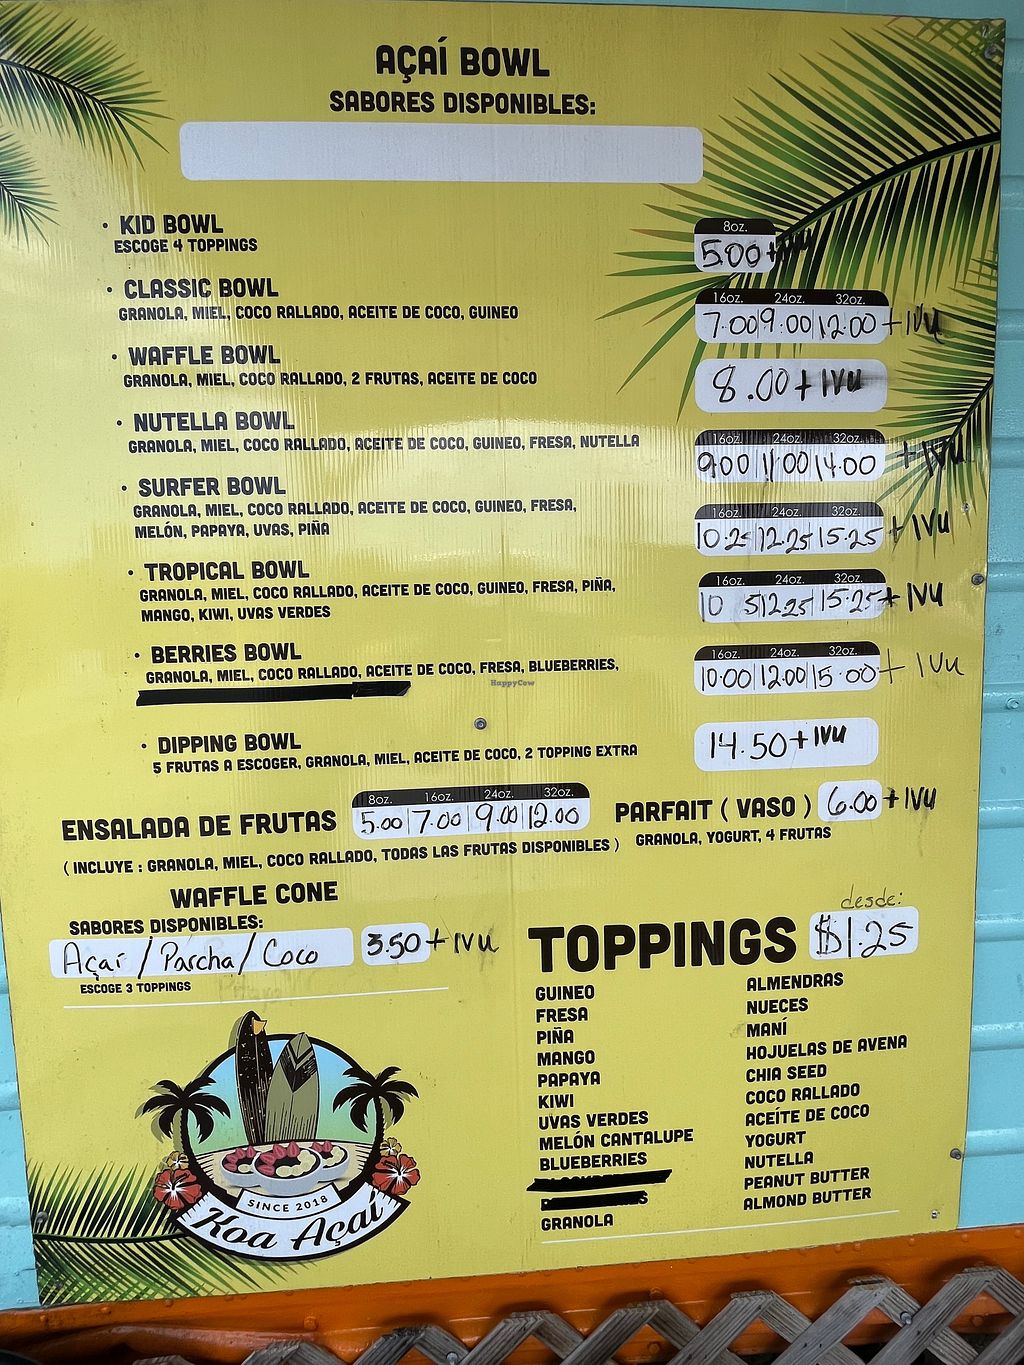 AÇAÍ BOWL
SABORES DISPONIBLES:
• KID BOWL
ESCOGE 4 TOPPINGS
8oz.
5.00+
• CLASSIC BOWL
GRANOLA, MIEL, COCO RALLADO, ACEITE DE COCO, GUINEO
16oz. 24oz. 32oz.
7.00 9.00 12.00 + IVU
• WAFFLE BOWL
GRANOLA, MIEL, COCO RALLADO, 2 FRUTAS, ACEITE DE COCO
8.00 + IVU
• NUTELLA BOWL
GRANOLA, MIEL, COCO RALLADO, ACEITE DE COCO, GUINEO, FRESA, NUTELLA
16oz. 24oz. 32oz.
9.00 11.00 14.00 + IVU
• SURFER BOWL
GRANOLA, MIEL, COCO RALLADO, ACEITE DE COCO, GUINEO, FRESA,
MELÓN, PAPAYA, UVAS, PIÑA
16oz. 24oz. 32oz.
10.25 12.25 15.25 + IVU
• TROPICAL BOWL
GRANOLA, MIEL, COCO RALLADO, ACEITE DE COCO, GUINEO, FRESA, PIÑA,
MANGO, KIWI, UVAS VERDES
16oz. 24oz. 32oz.
10 5 12.25 15.25 + IVU
• BERRIES BOWL
GRANOLA, MIEL, COCO RALLADO, ACEITE DE COCO, FRESA, BLUEBERRIES,
16oz. 24oz. 32oz.
10.00 12.00 15.00 + IVU
HappyCow
• DIPPING BOWL
5 FRUTAS A ESCOGER, GRANOLA, MIEL, ACEITE DE COCO, 2 TOPPING EXTRA
14.50 + IVU
ENSALADA DE FRUTAS
8oz. 16oz. 24oz. 32oz.
5.00 7.00 9.00 12.00
( INCLUYE : GRANOLA, MIEL, COCO RALLADO, TODAS LAS FRUTAS DISPONIBLES )
PARFAIT ( VASO ) 6.00 + IVU
GRANOLA, YOGURT, 4 FRUTAS
WAFFLE CONE
SABORES DISPONIBLES:
Açaí / Parcha / Coco 3.50 + IVU
ESCOGE 3 TOPPINGS
desde:
TOPPINGS $1.25
GUINEO
FRESA
PIÑA
MANGO
PAPAYA
KIWI
UVAS VERDES
MELÓN CANTALUPE
BLUEBERRIES
GRANOLA
ALMENDRAS
NUECES
MANÍ
HOJUELAS DE AVENA
CHIA SEED
COCO RALLADO
ACEÍTE DE COCO
YOGURT
NUTELLA
PEANUT BUTTER
ALMOND BUTTER
SINCE 2018
Koa Açaí